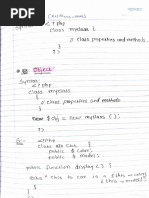 Syntax:
< ? php
class myclass {
// class properties and methods
}
? >
Object:
Syntax:
< ? php
class myclass
{
// class properties and methods
}
$obj = new myclass ( );
? >
< ? php
class
public $ color ;
public $ model ;
public function display ( ) {
echo " this car is a